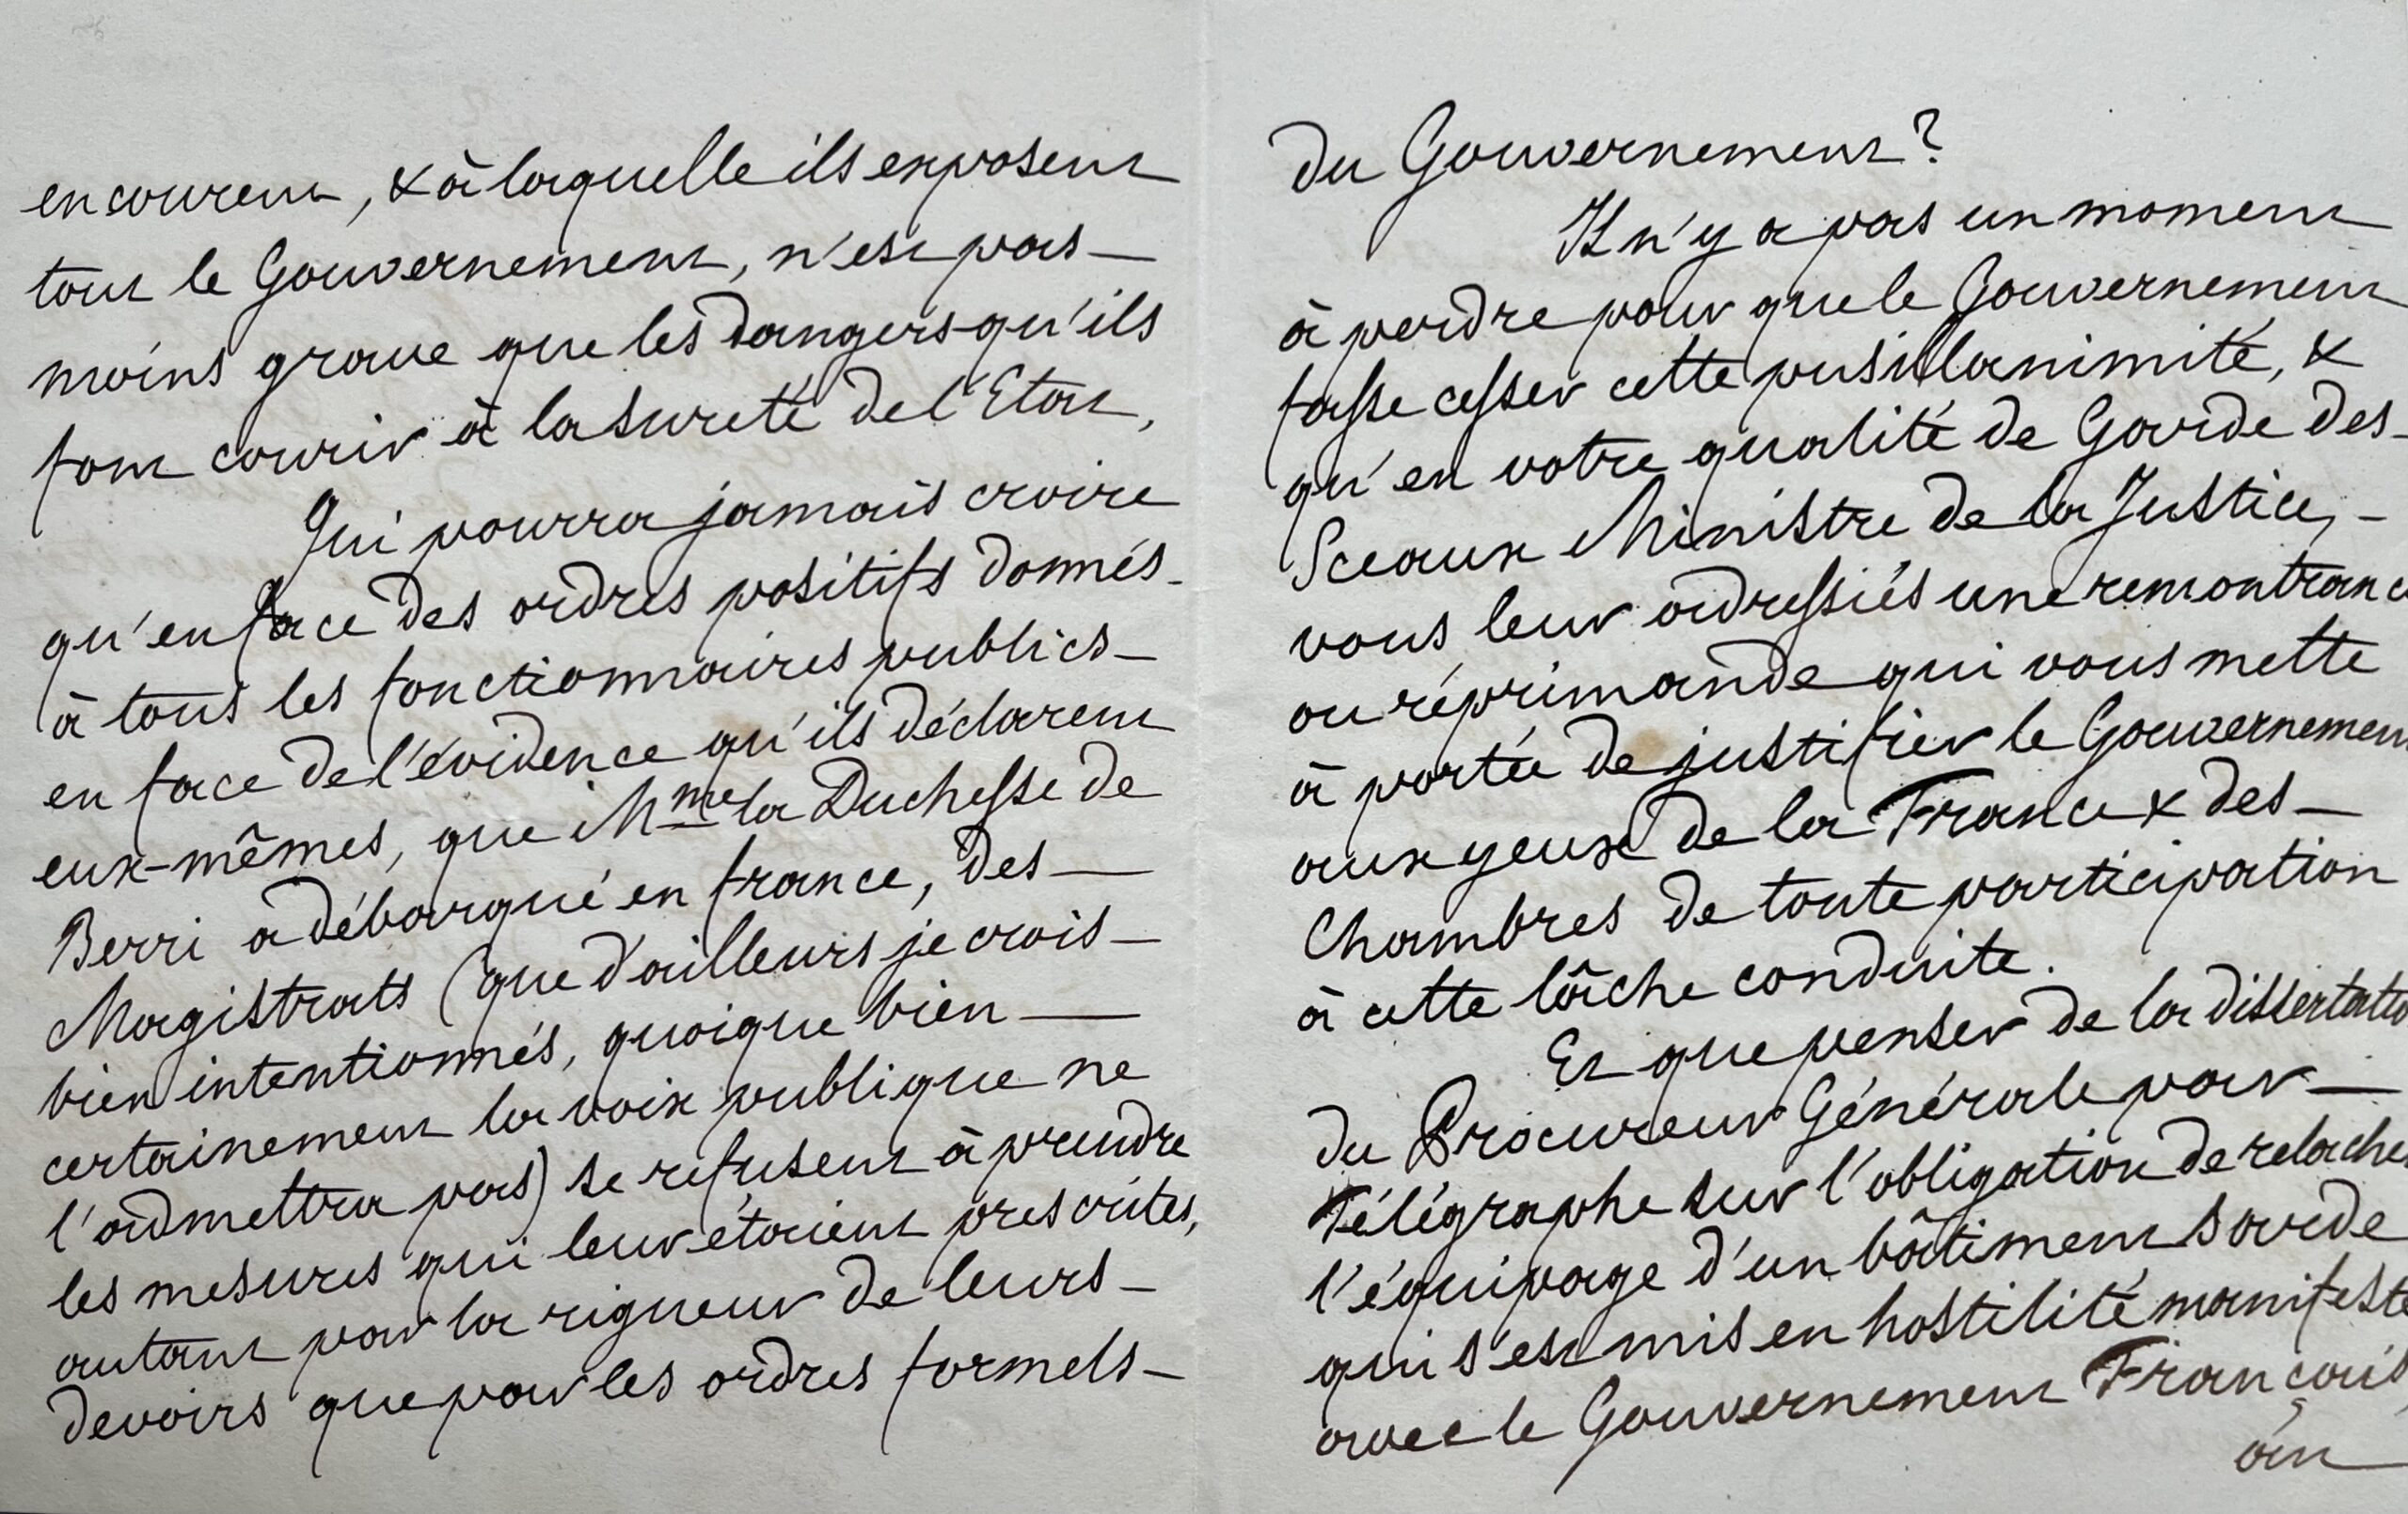 encourent, & à laquelle ils exposent
tout le Gouvernement, n'est pas —
moins grave que les dangers qu'ils
font courir à la sureté de l'Etat,
Qui pourra jamais croire
qu'en face des ordres positifs donnés -
à tous les fonctionnaires publics —
en face de l'évidence qu'ils déclarent
eux-mêmes, que Mme la Duchesse de
Berri a débarqué en france, des —
Magistrats (que d'ailleurs je crois —
bien intentionnés, quoique bien —
certainement la voix publique ne
l'admettra pas) se refusent à prendre
les mesures qui leur étaient prescrites,
autant par la rigueur de leurs —
devoirs que par les ordres formels —
du Gouvernement?
Il n'y a pas un moment
à perdre pour que le Gouvernement
fasse cesser cette pusillanimité, &
qu'en votre qualité de Garde des -
Sceaux Ministre de la Justice, -
vous leur adressiés une remontrance
ou réprimande qui vous mette
à portée de justifier le Gouvernement
aux yeux de la France & des —
Chambres de toute participation
à cette lâche conduite.
Et que penser de la dissertatio
du Procureur Générale par —
Télégraphe sur l'obligation de relacher
l'équipage d'un bâtiment sarde
qui s'est mis en hostilité manifeste
avec le Gouvernement Français,